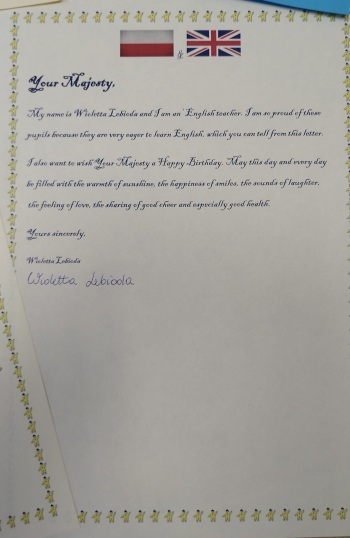 &
Your Majesty,
My name is Wioletta Lebioda and I am an English teacher. I am so proud of these
pupils because they are very eager to learn English, which you can tell from this letter.
I also want to wish Your Majesty a Happy Birthday. May this day and every day
be filled with the warmth of sunshine, the happiness of smiles, the sounds of laughter,
the feeling of love, the sharing of good cheer and especially good health.
Yours sincerely,
Wioletta Lebioda
Wioletta Lebioda